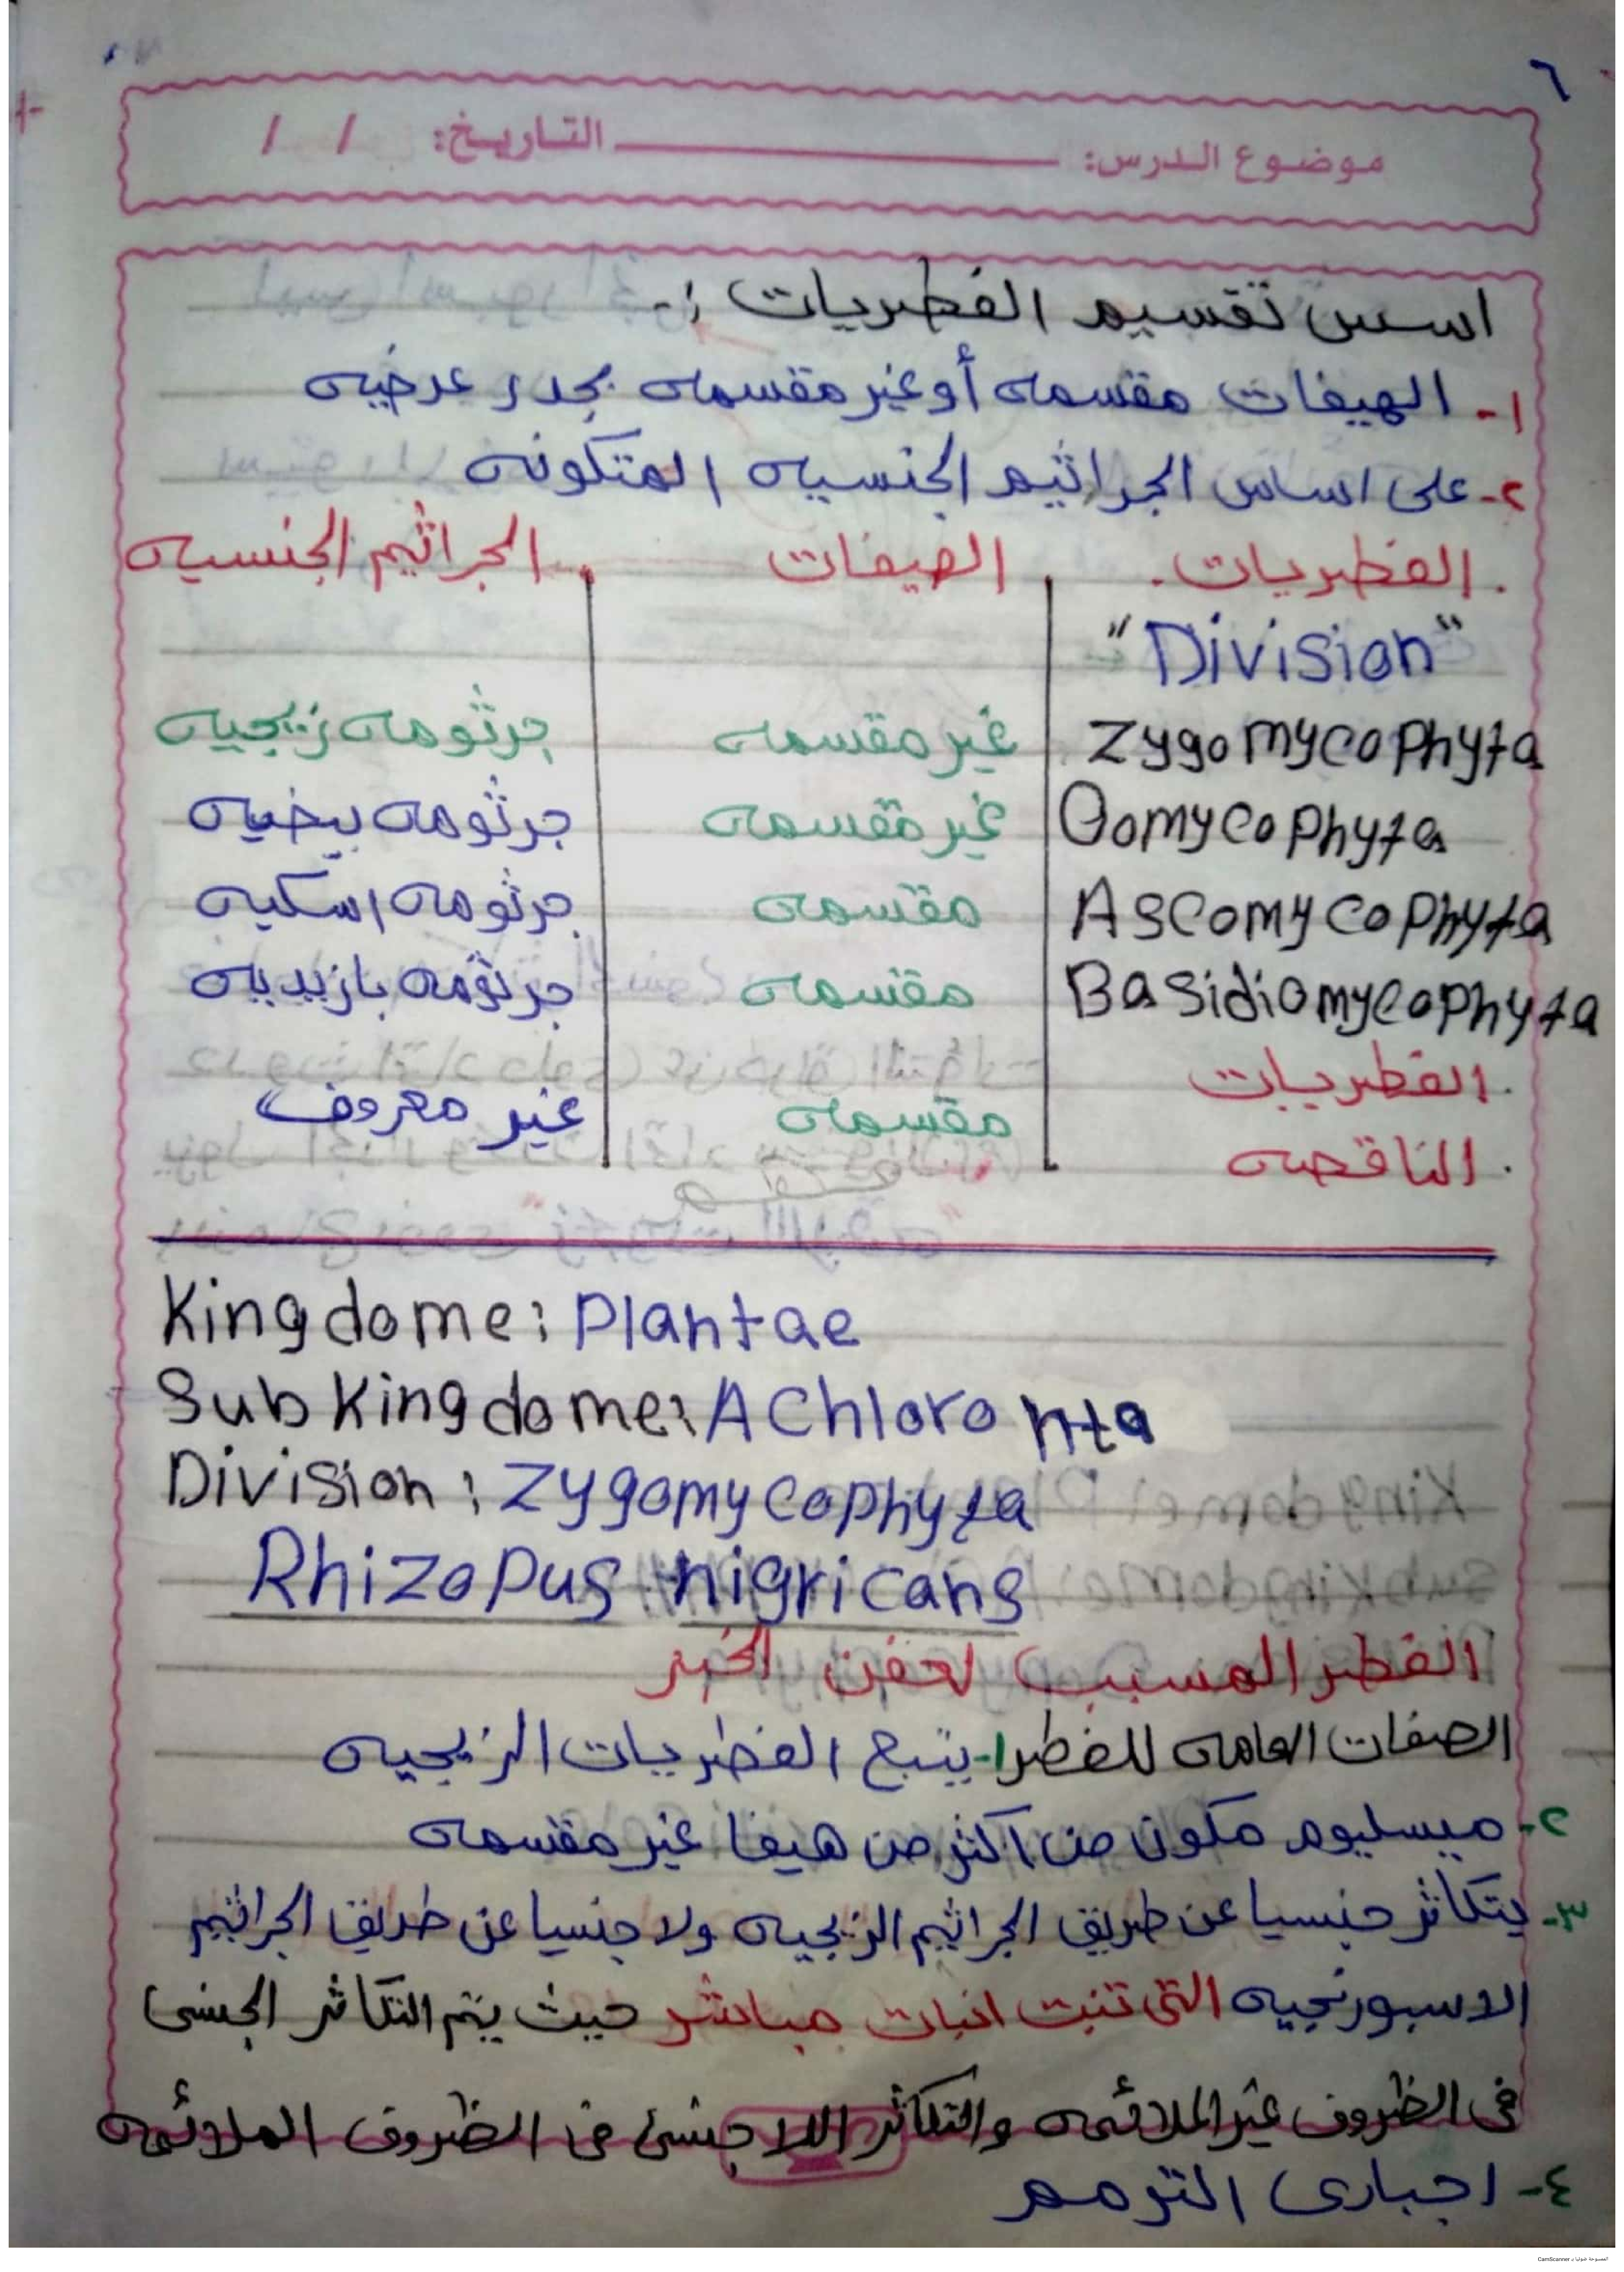 ٦
موضوع الدرس: التاريخ: / /
اسس تقسيم الفطريات :-
١- الهيفات مقسمه أو غير مقسمه بجدر عرضيه
٢- على اساس الجراثيم الجنسيه المتكونه
الفطريات الهيفات الجراثيم الجنسيه
"Division"
Zygomycophyta غير مقسمه جرثومه زيجيه
Oomycophyta غير مقسمه جرثومه بيضيه
Ascomycophyta مقسمه جرثومه اسكيه
Basidiomycophyta مقسمه جرثومه بازيديه
الفطريات
مقسمه غير معروف
الناقصه
Kingdome: Plantae
SubKingdome: AChloronta
Division: Zygomycophyta
Rhizopus nigricans
الفطر المسبب لعفن الخبز
الصفات العامه للفطر ١- يتبع الفطريات الزيجيه
٢- ميسليوم مكون من اكثر من هيفا غير مقسمه
٣- يتكاثر جنسيا عن طريق الجراثيم الزيجيه ولا جنسيا عن طريق الجراثيم
الاسبورنجيه التى تنبت انبات مباشر حيث يتم التكاثر الجنسى
فى الظروف غير الملائمه والتكاثر اللا جنسئ فى الظروف الملائمه
٤- اجبارى الترمم
الممسوحة ضوئيا بـ CamScanner